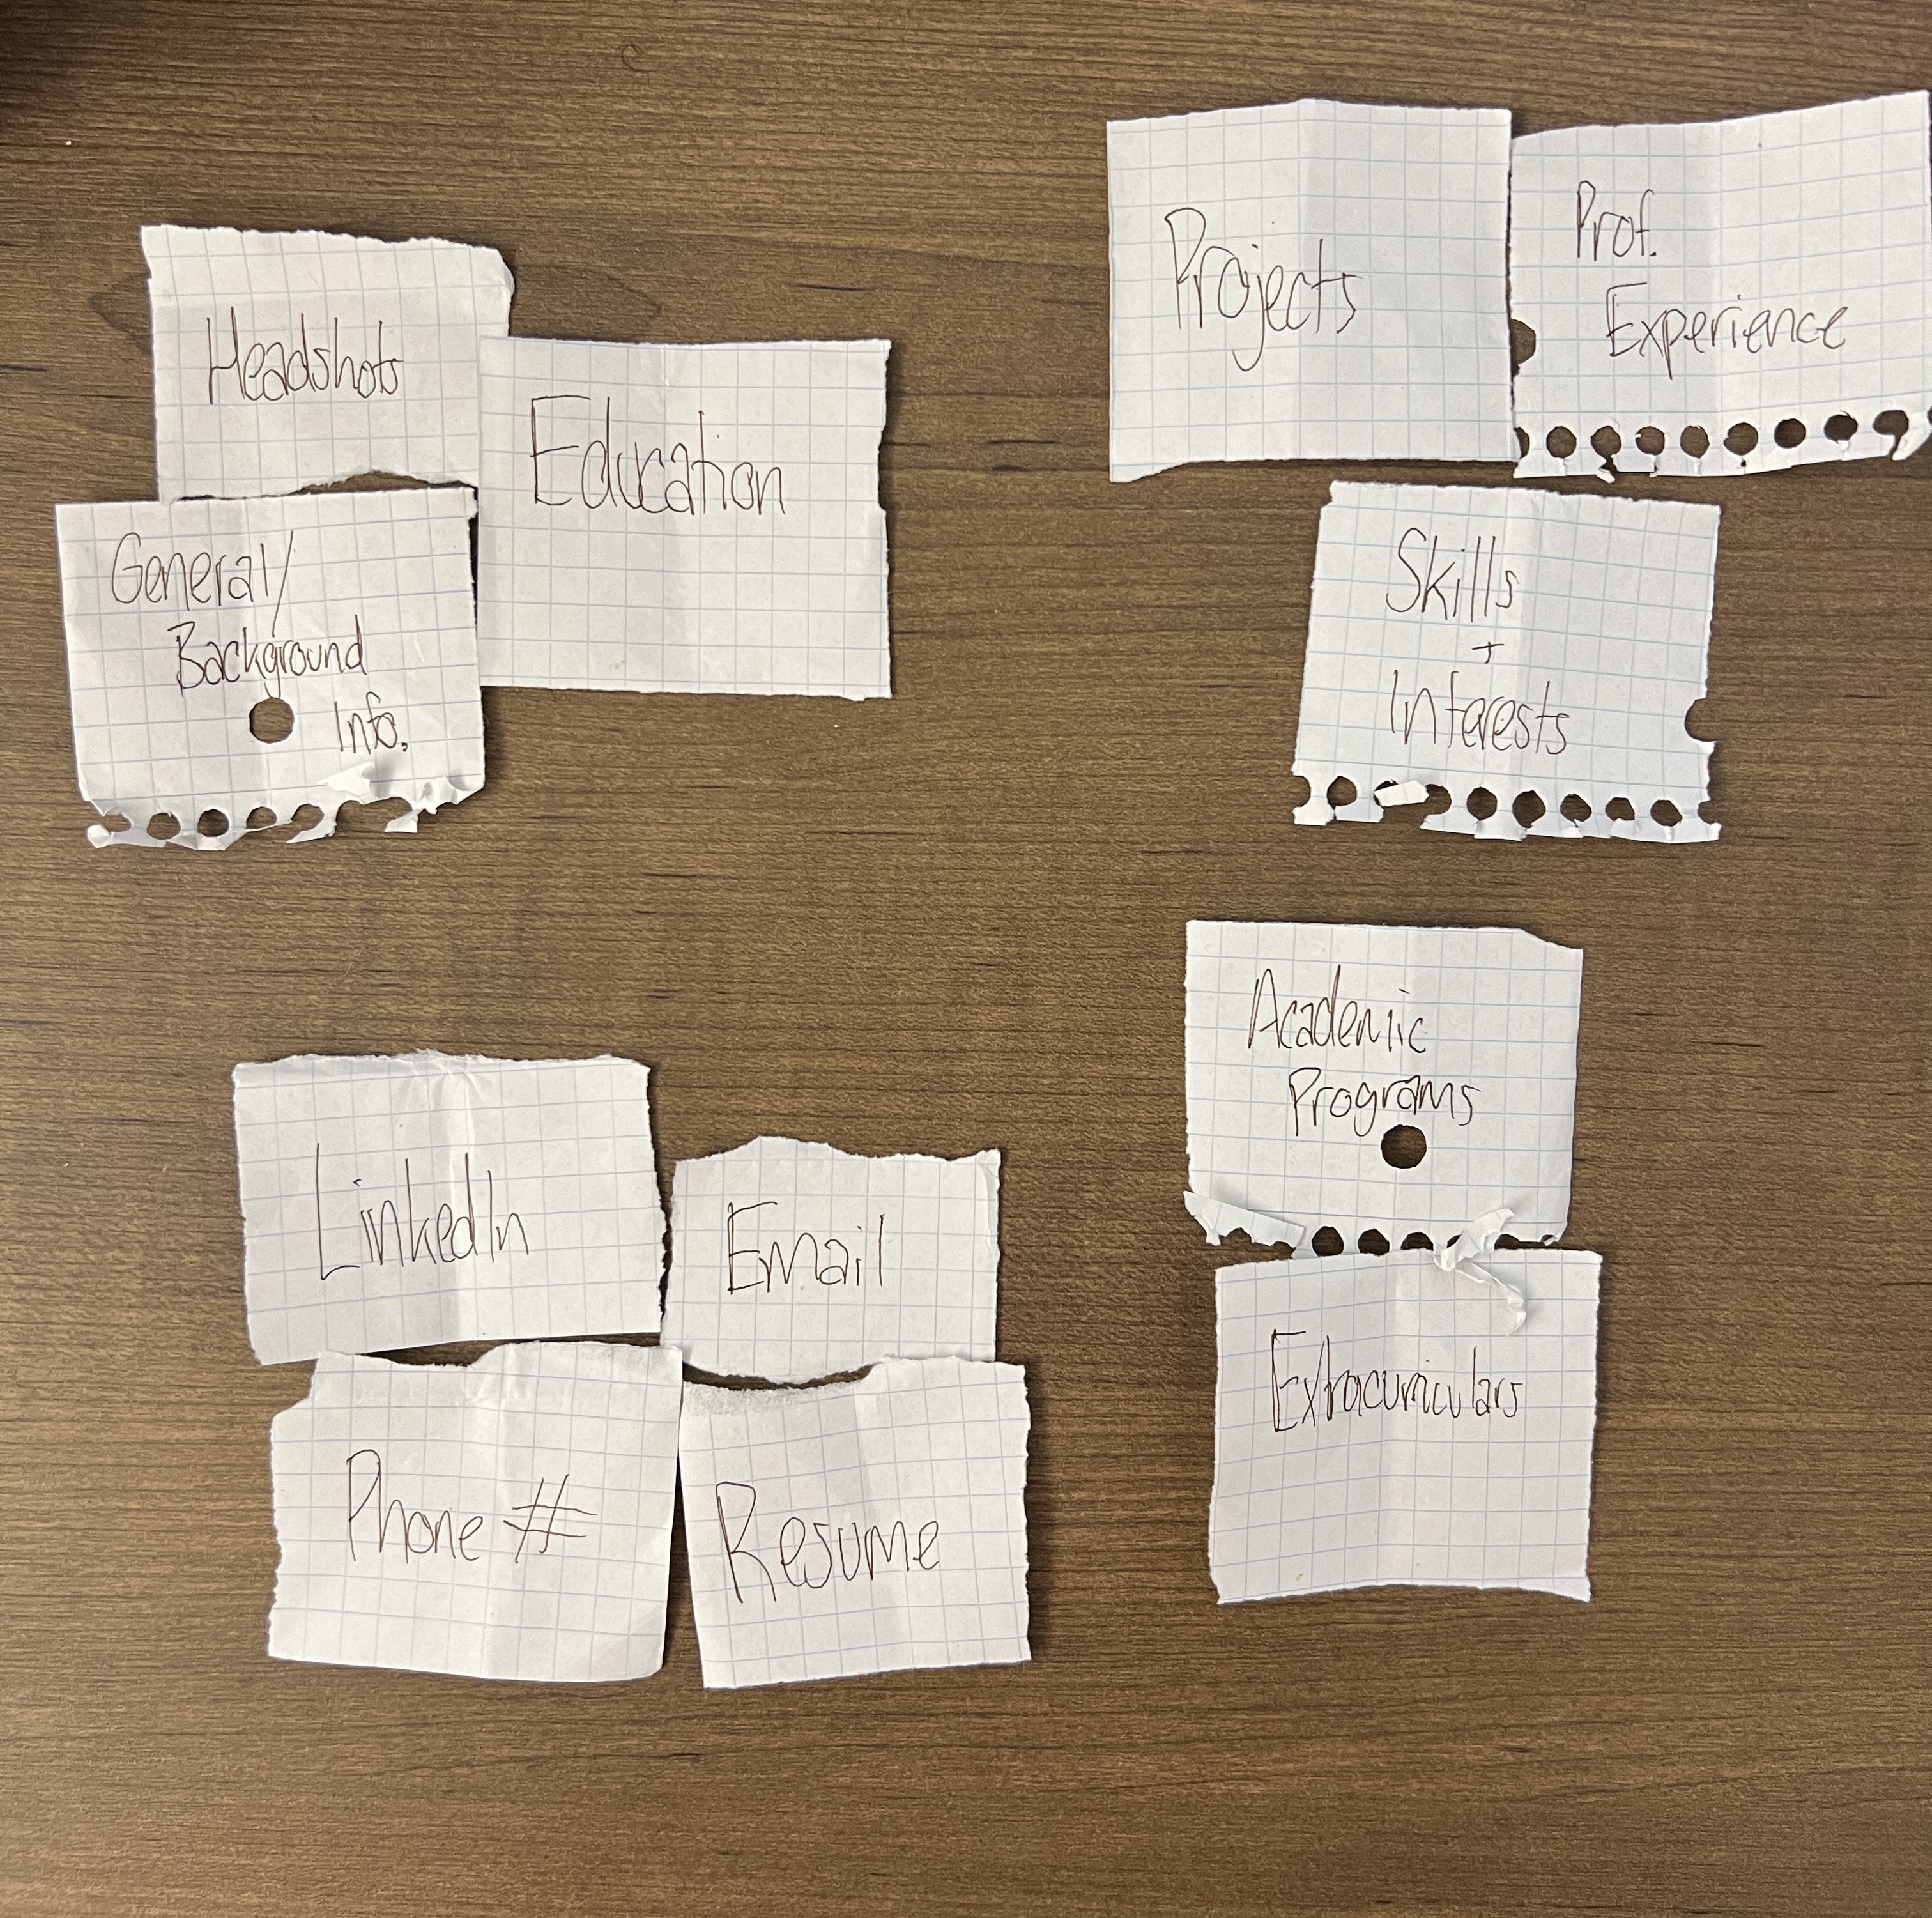 Headshots
Education
General/
Background
Info.
Projects
Prof.
Experience
Skills
+
Interests
LinkedIn
Email
Phone #
Resume
Academic
Programs
Extracurriculars